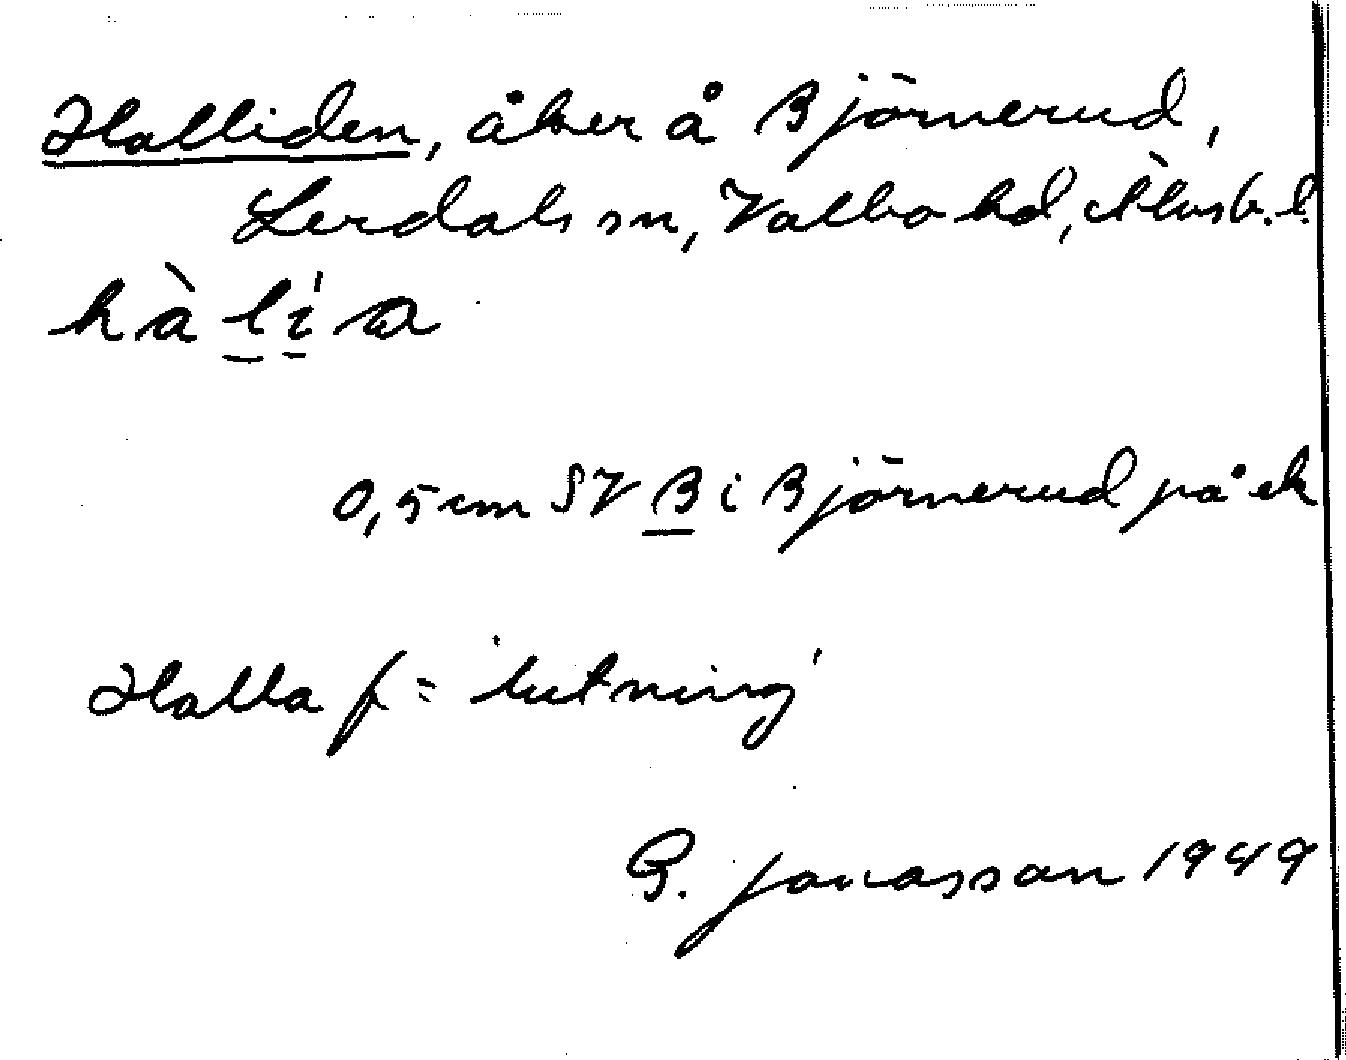 Halliden, åker å Björnerud,
Lerdals sn, Valbo hd, Älvsb. l.
hà lí a
0,5 cm SV B i Björnerud på ek
Halla f = 'lutning'
G. Jonasson 1949